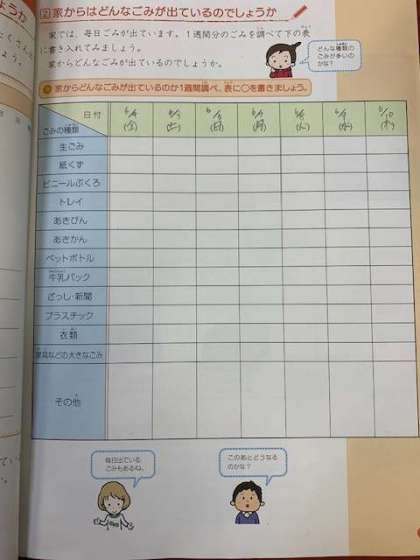 2 家からはどんなごみが出ているのでしょうか
家では、毎日ごみが出ています。1週間分のごみを調べて下の表
に書き入れてみましょう。
家からどんなごみが出ているのでしょうか。
どんな種類の
ごみが多いの
かな?
家からどんなごみが出ているのか1週間調べ、表に○を書きましょう。
日付
ごみの種類
(土)
(日)
(月)
(火)
(水)
(木)
生ごみ
紙くず
ビニールぶくろ
トレイ
あきびん
あきかん
ペットボトル
牛乳パック
ざっし・新聞
プラスチック
衣類
家具などの大きなごみ
その他
毎日出ている
ごみもあるね。
このあとどうなる
のかな?